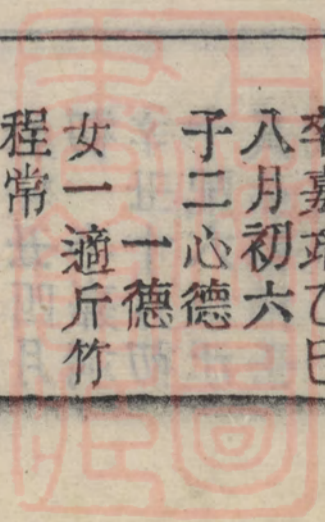 卒嘉靖乙巳
八月初六
子二心德
一德
女一適斤竹
程常